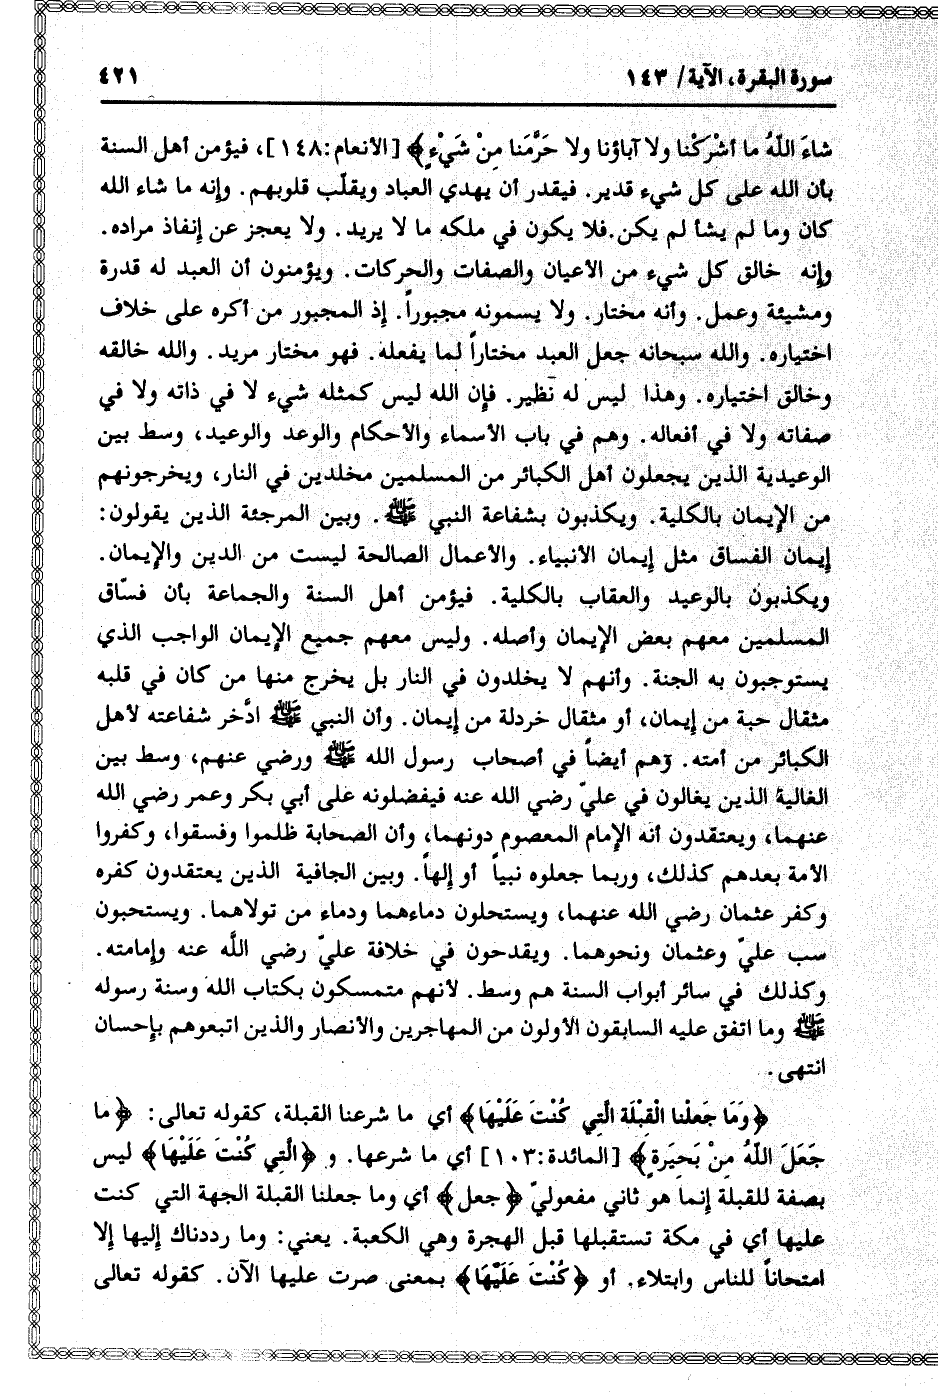 سورة البقرة، الآية/ ١٤٣
٤٢١
شاءَ اللّهُ ما أشْرَكْنا ولا آباؤنا ولا حَرَّمَنا مِنْ شَيْءٍ﴾ [الأنعام:١٤٨]، فيؤمن أهل السنة
بأن الله على كل شيء قدير. فيقدر أن يهدي العباد ويقلّب قلوبهم. وإنه ما شاء الله
كان وما لم يشأ لم يكن.فلا يكون في ملكه ما لا يريد. ولا يعجز عن إنفاذ مراده.
وإنه خالق كل شيء من الأعيان والصفات والحركات. ويؤمنون أن العبد له قدرة
ومشيئة وعمل. وأنه مختار. ولا يسمونه مجبوراً. إذ المجبور من أكره على خلاف
اختياره. والله سبحانه جعل العبد مختاراً لما يفعله. فهو مختار مريد. والله خالقه
وخالق اختياره. وهذا ليس له نظير. فإن الله ليس كمثله شيء لا في ذاته ولا في
صفاته ولا في أفعاله. وهم في باب الأسماء والأحكام والوعد والوعيد، وسط بين
الوعيدية الذين يجعلون أهل الكبائر من المسلمين مخلدين في النار، ويخرجونهم
من الإيمان بالكلية. ويكذبون بشفاعة النبي ﷺ. وبين المرجئة الذين يقولون:
إيمان الفساق مثل إيمان الأنبياء. والأعمال الصالحة ليست من الدين والإيمان.
ويكذبون بالوعيد والعقاب بالكلية. فيؤمن أهل السنة والجماعة بأن فسّاق
المسلمين معهم بعض الإيمان وأصله. وليس معهم جميع الإيمان الواجب الذي
يستوجبون به الجنة. وأنهم لا يخلدون في النار بل يخرج منها من كان في قلبه
مثقال حبة من إيمان، أو مثقال خردلة من إيمان. وأن النبي ﷺ ادّخر شفاعته لأهل
الكبائر من أمته. وهم أيضاً في أصحاب رسول الله ﷺ ورضي عنهم، وسط بين
الغالية الذين يغالون في عليّ رضي الله عنه فيفضلونه على أبي بكر وعمر رضي الله
عنهما، ويعتقدون أنه الإمام المعصوم دونهما، وأن الصحابة ظلموا وفسقوا، وكفروا
الأمة بعدهم كذلك، وربما جعلوه نبياً أو إلهاً. وبين الجافية الذين يعتقدون كفره
وكفر عثمان رضي الله عنهما، ويستحلون دماءهما ودماء من تولاهما. ويستحبون
سب عليّ وعثمان ونحوهما. ويقدحون في خلافة عليّ رضي اللَّه عنه وإمامته.
وكذلك في سائر أبواب السنة هم وسط. لأنهم متمسكون بكتاب الله وسنة رسوله
ﷺ وما اتفق عليه السابقون الأولون من المهاجرين والأنصار والذين اتبعوهم بإحسان
انتهى.
﴿وَمَا جَعَلْنا الْقِبْلَة الَّتِي كُنْتَ عَلَيْهَا﴾ أي ما شرعنا القبلة، كقوله تعالى: ﴿ما
جَعَلَ اللّهُ مِنْ بَحِيَرة﴾ [المائدة:١٠٣] أي ما شرعها. و ﴿الَّتِي كُنْتَ عَلَيْهَا﴾ ليس
بصفة للقبلة إنما هو ثاني مفعوليّ ﴿جعل﴾ أي وما جعلنا القبلة الجهة التي كنت
عليها أي في مكة تستقبلها قبل الهجرة وهي الكعبة. يعني: وما رددناك إليها إلا
امتحاناً للناس وابتلاء. أو ﴿كُنْتَ عَلَيْهَا﴾ بمعنى صرت عليها الآن. كقوله تعالى